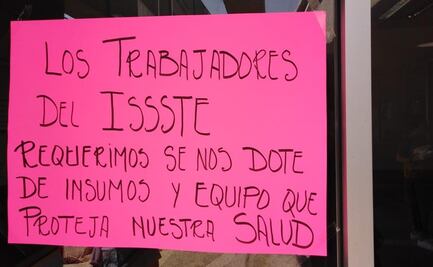 LOS TRABAJADORES
DEL ISSSTE
REQUERIMOS SE NOS DOTE
DE INSUMOS Y EQUIPO QUE
PROTEJA NUESTRA SALUD